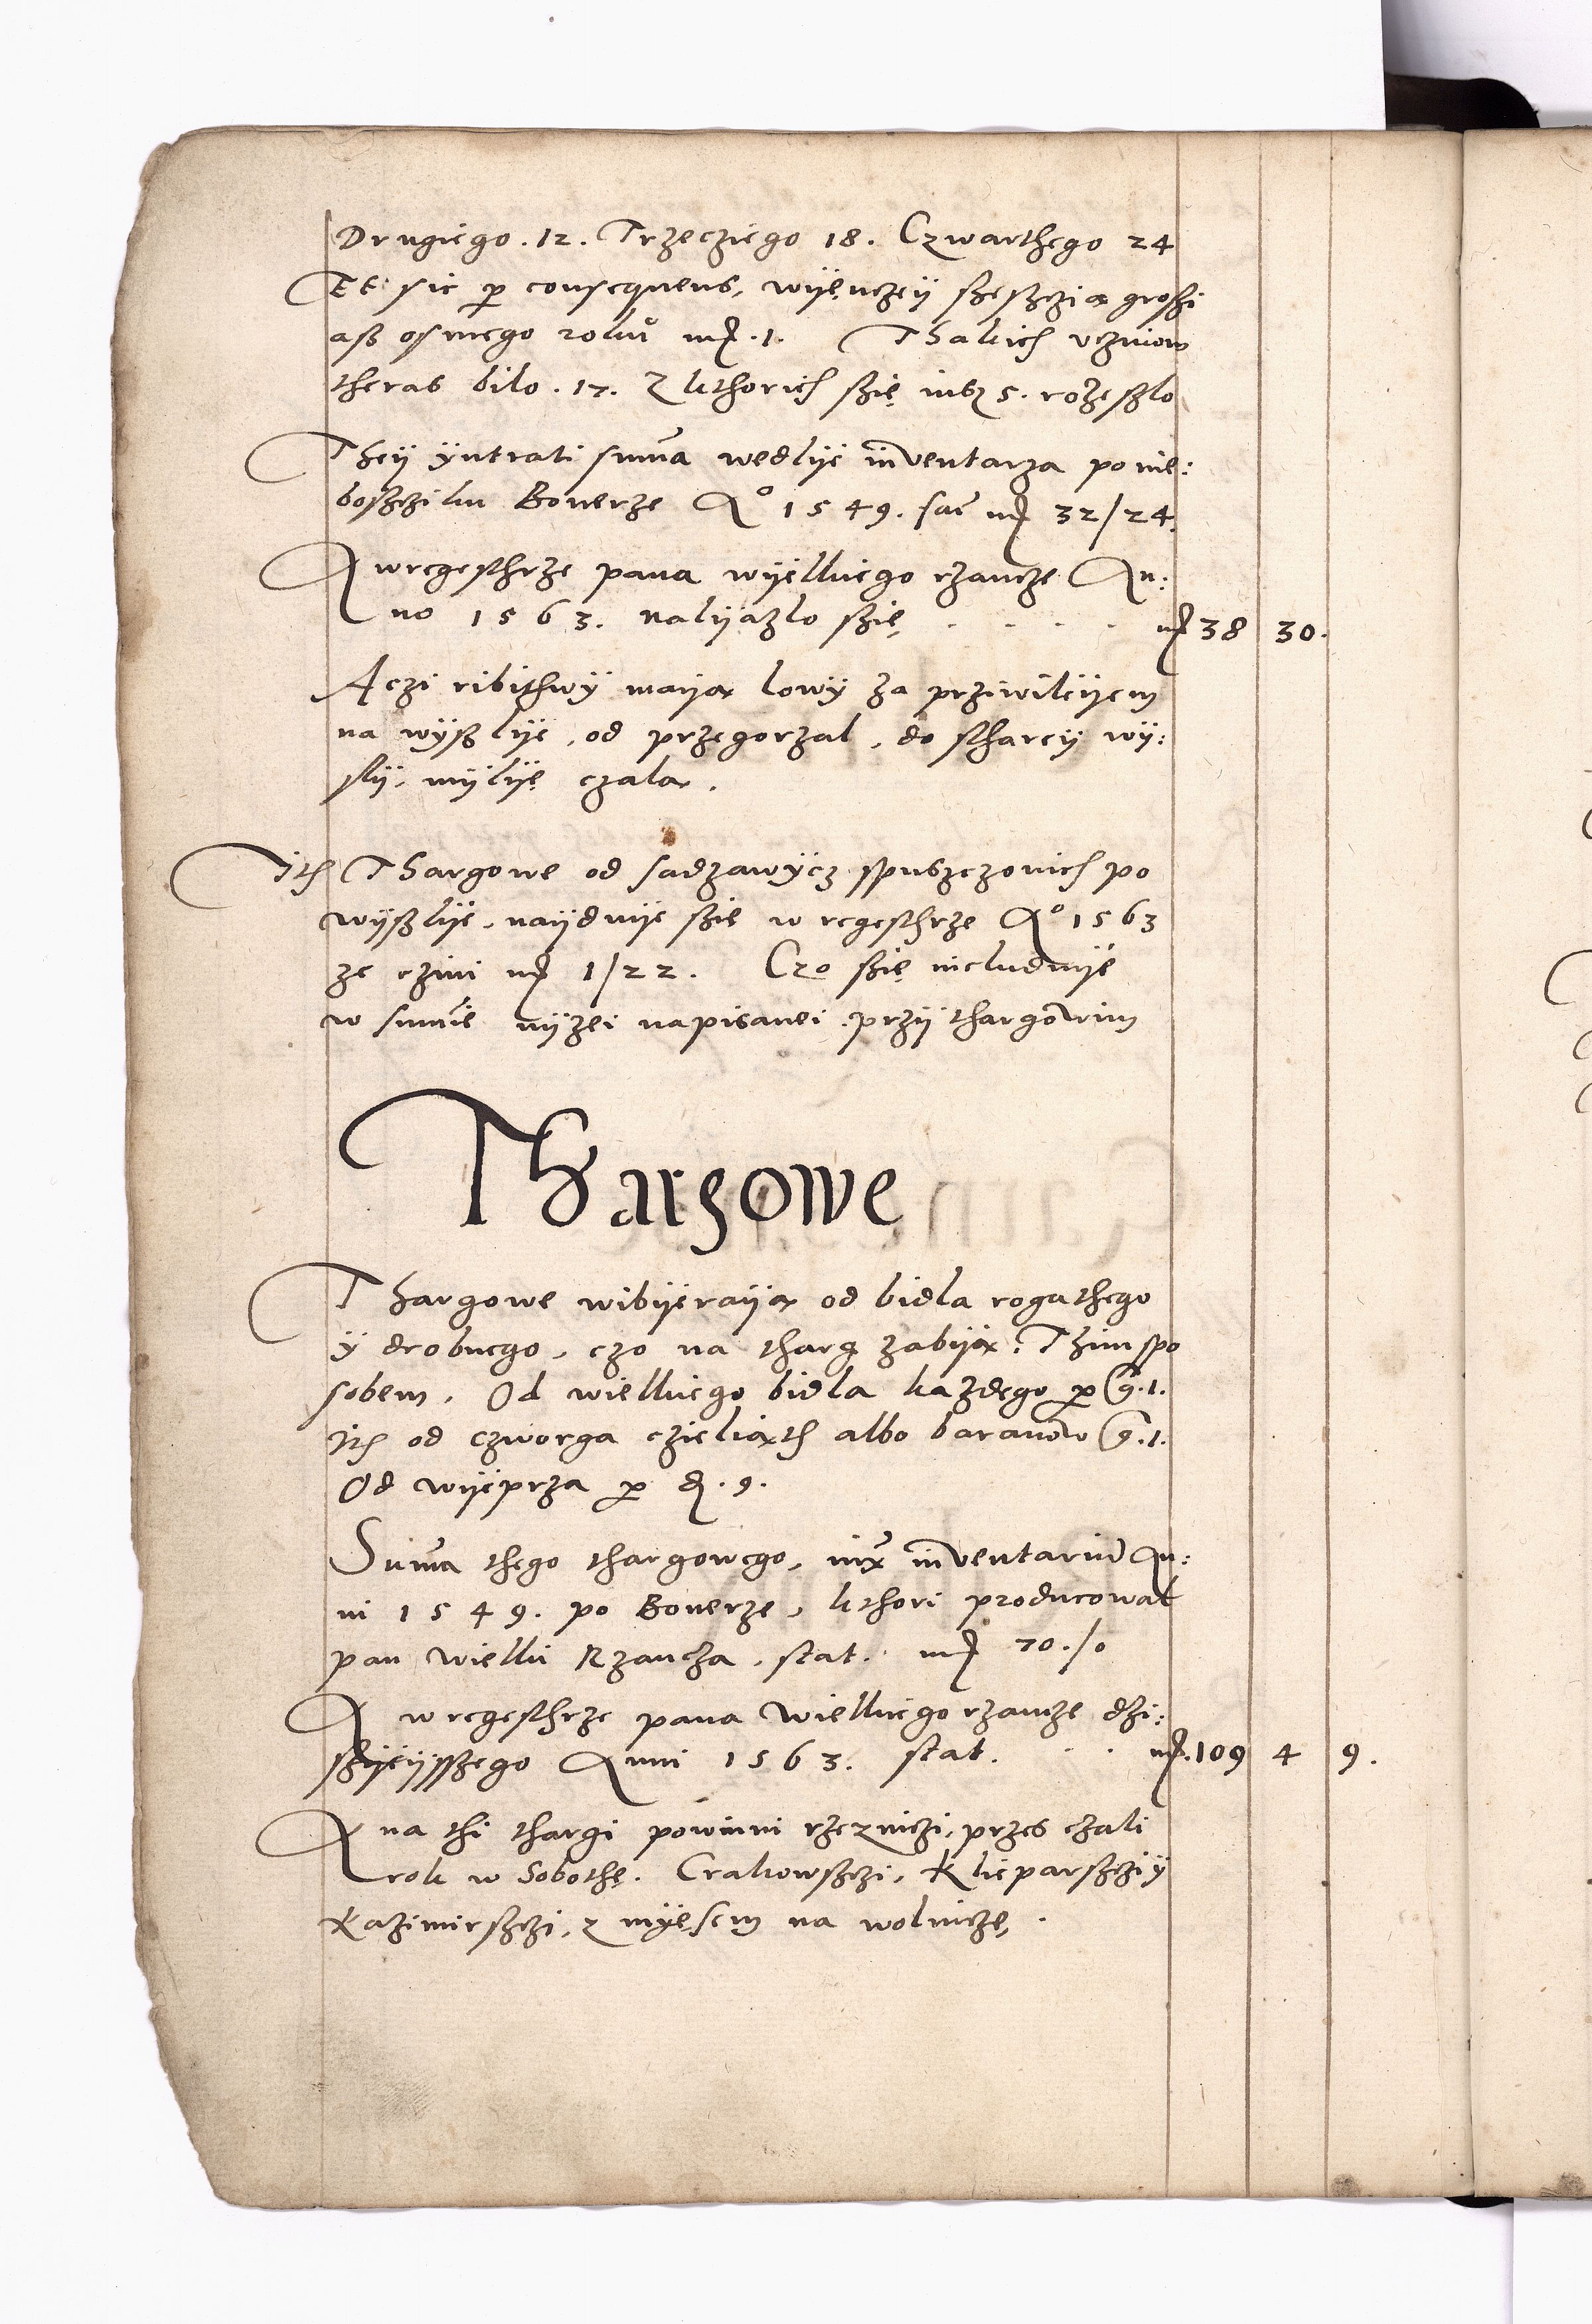 Drugiego . 12 . Trzecziego 18 . Czwarthego 24
Et sic p consequens, wyęnczey sżesżczia groszi
asz osmego roku mͬ . 1 . Thakich vczniow
theras bilo . 17 . Z kthorich sżię iusz 5 . rozesżlo
They yntrati suma wedlye inventarza po nie:
boszcziku Bonerze Aº 1549 . fac mͬ 32/24.
A wregesthrze pana wyelkiego rzancze An:
no 1563 . nalyazlo sżię . . . . mͬ 38 30.
Aczi ribithwy maya lowy za prziwileyem
na wyszlye, od przegorzal, do stharey wy:
sly, mylye czala .
Ith Thargowe od sadzawycz spusczonich po
wyszlye, naydnye sżie w regesthrze Aº 1563
ze czini mͬ 1/22 . Czo sżię includuye
w sumie nyzei napisanei przy thargowim
Thargowe
Thargowe wibyeraya od bidla rogathego
y drobnego, czo na tharg zabyia : Thim spo
sobem, Od wielkiego bidla kazdego p g . 1 .
Ith od czworga czieliath albo baranow g . 1 .
Od wyeprza p d . 9 .
Suma thego thargowego, iux inventariu An:
ni 1549 . po Bonerze, kthori producowal
pan Wielki Rzancza, stat . mͬ 70./0
A w regesthrze pana Wielkiego rzancze dzi:
sżyeyszego Anni 1563 . stat . . . mͬ . 109 4 9 .
A na thi thargi powinni rzezniczi, przes czali
rok w Sobothę . Crakowsczi, Klieparsczi y
Kazimirsczi, z myęsem na wolniczę, .